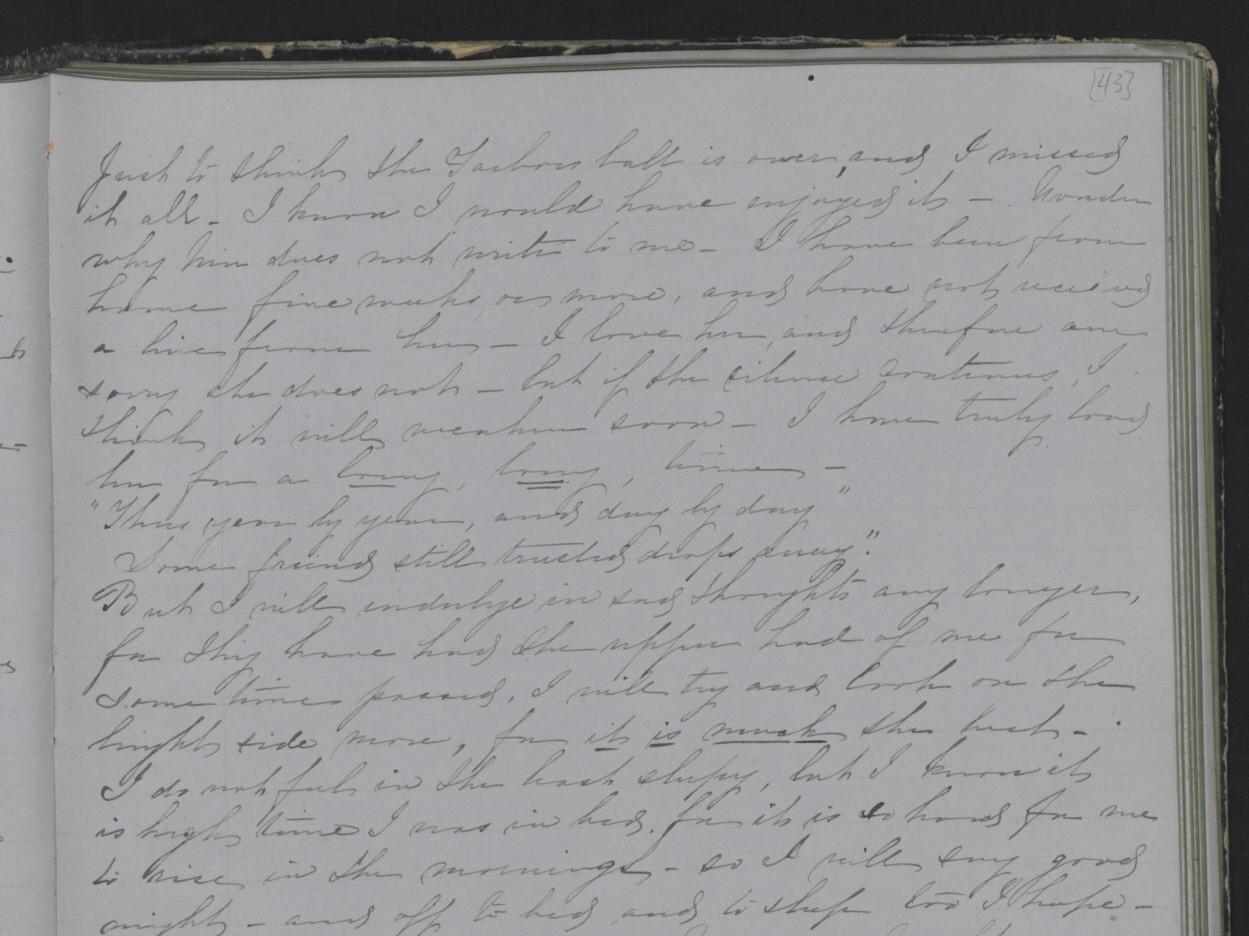 [43]
Just to think the Tarboro ball is over, and I missed
it all - I know I would have enjoyed it - . Wonder
why Nin does not write to me - I have been from
home five weeks or more, and have not recieved
a line from her - I love her, and therefore am
sorry she does not - but if the silence continues, I
think it will weaken soon - I have truly loved
her for a long, long, time -
"Thus year by year, and day by day"
Some friend still trusted drops away".
But I will indulge in sad thoughts any longer,
for they have had the upper had of me for
some time passed, I will try and look on the
bright side more, for it is much the best -
I do not feel in the least sleepy, but I know it
is high time I was in bed, for it is so hard for me
to rise in the mornings - so I will say good
night - and off to bed and to sleep too I hope -